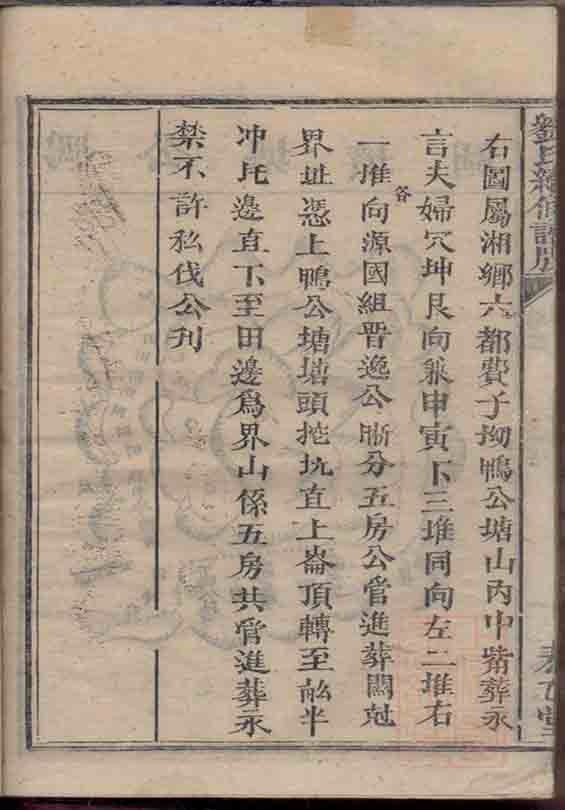 右圖屬湘鄉六都費子拗鴨公塘山內中紫葬永
言夫婦穴坤艮向兼申寅下三堆同向左二堆右
一堆向源國組晋逸公晰分五房公管進葬闊尅
各
界址憑上鴨公塘塘頭挖坑直上崙頂轉至䑓半
冲圫邊直下至田邊爲界山係五房共管進葬永
禁不許私伐公刊
劉氏續修譜